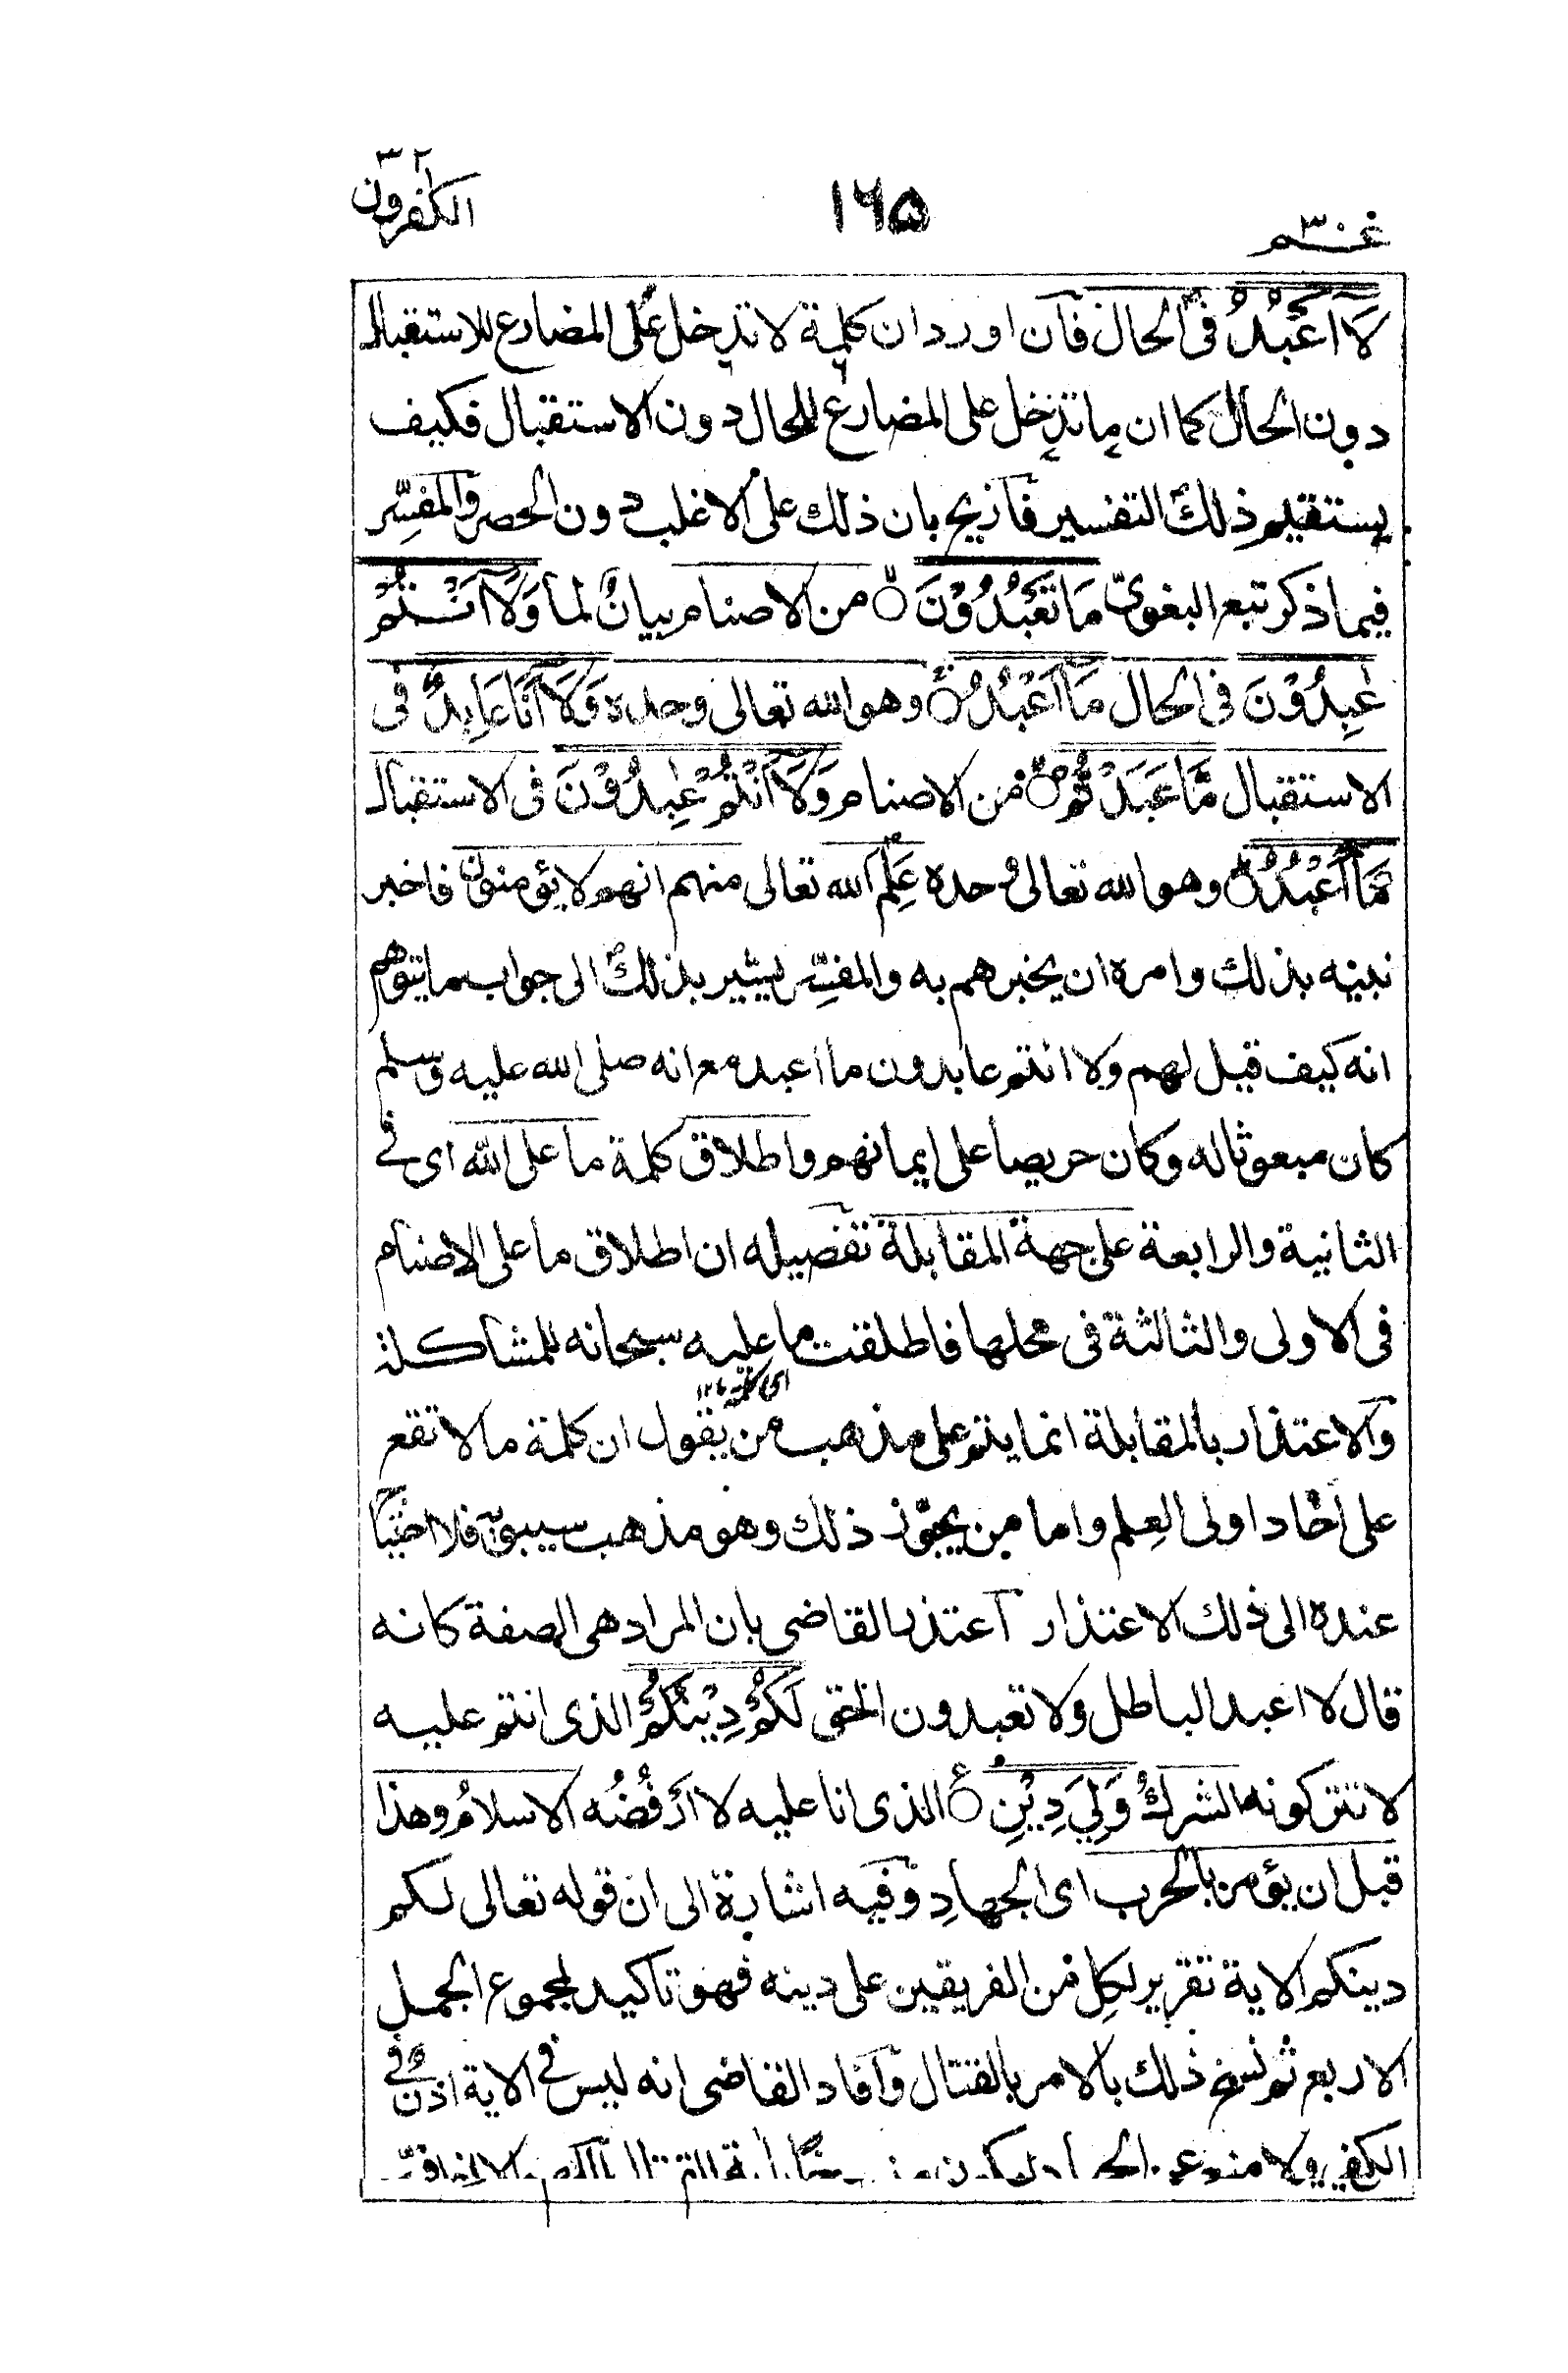 عم ٣٠
١٦٥
الكفرون
لَآ اَعْبُدُ فى الحال فان اورد ان كلمة لا تدخل على المضارع للاستقبال
دون الحال كما ان ما تدخل على المضارع للحال دون الاستقبال فكيف
يستقيم ذلك التفسير فازيح بان ذلك على الاغلب دون الحصر والمفسِّر
فيما ذكر تبع البغوىّ مَا تَعْبُدُوْنَ من الاصنام بيانٌ لما وَلَآ اَنْتُمْ
عٰبِدُوْنَ فى الحال مَآ اَعْبُدُ وهو الله تعالى وحده وَلَآ اَنَا عَابِدٌ فى
الاستقبال مَّا عَبَدْتُّمْ من الاصنام وَلَآ اَنْتُمْ عٰبِدُوْنَ فى الاستقبال
مَآ اَعْبُدُ وهو الله تعالى وحده عَلِم الله تعالى منهم انهم لا يؤمنون فاخبر
نبيه بذلك وامره ان يخبرهم به والمفسِّر يشير بذلك الى جواب ما يتوهم
انه كيف قيل لهم ولا انتم عابدون ما اعبد مع انه صلى الله عليه وسلم
كان مبعوثا له وكان حريصا على ايمانهم واطلاق كلمة ما على الله اى فى
الثانية والرابعة على جهة المقابلة تفصيله ان اطلاق ما على الاصنام
فى الاولى والثالثة فى محلها فاطلقت ما عليه سبحانه للمشاكلة
والاعتذار بالمقابلة انما يتم على مذهب من يقول ان كلمة ما لا تقع
على اٰحاد اولى العِلم واما من يجوّز ذلك وهو مذهب سيبويه فلا احتياج
عنده الى ذلك الاعتذار اعتذر القاضى بان المراد هى الصفة كانه
قال لا اعبد الباطل ولا تعبدون الحق لَكُمْ دِيْنُكُمْ الذى انتم عليه
لا تتركونه الشرك وَلِيَ دِيْنِ الذى انا عليه لا اَرْفُضُه الاسلامُ وهذا
قبل ان يؤمر بالحرب اى الجهادِ وفيه اشارة الى ان قوله تعالى لكم
دينكم الاية تقرير لكل من الفريقين على دينه فهو تاكيد لمجموع الجمل
الاربع ثم نسخ ذلك بالامر بالقتال وافاد القاضى انه ليس فى الاية اذن فى
الكفر ولا منع عن الجهاد ليكون